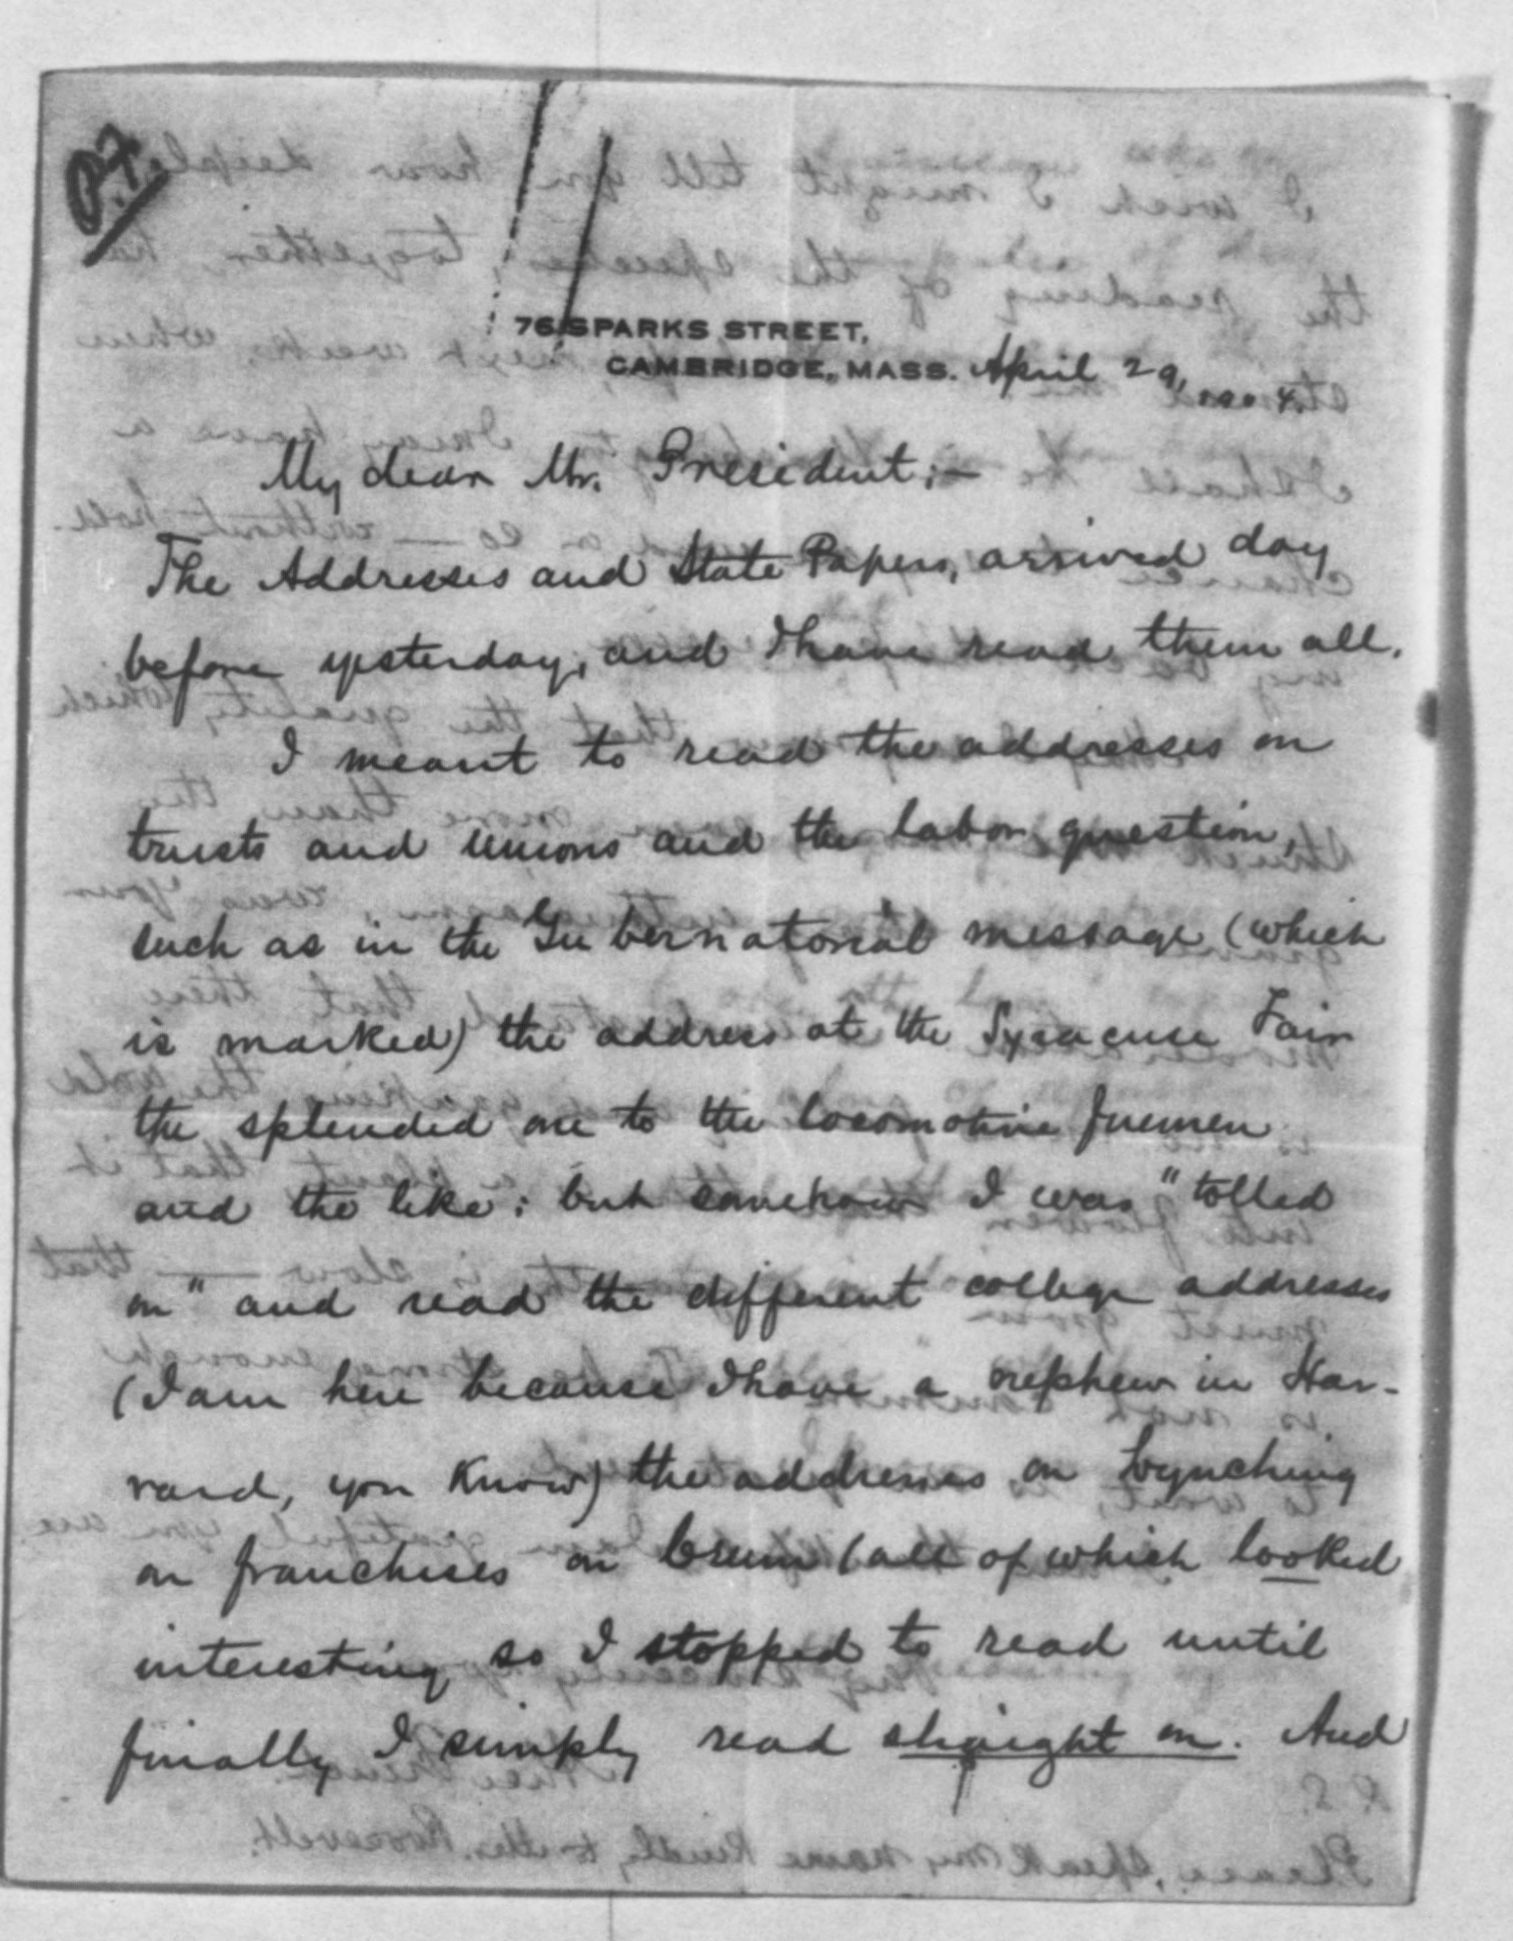 P.F.
76 SPARKS STREET,
CAMBRIDGE, MASS. April 29, 1904.
My dear Mr. President:—
The Addresses and State Papers, arrived day
before yesterday, and I have read them all.
I meant to read the addresses on
trusts and unions and the labor question,
such as in the Gubernatorial message (which
is marked) the address at the Syracuse Fair
the splended one to the locomotive firemen
and the like: but somehow I was "tolled
on" and read the different college addresses
(I am here because I have a nephew in Har-
vard, you know) the addresses on Lynching
on franchises on Crum (all of which looked
interesting so I stopped to read until
finally I simply read straight on. And